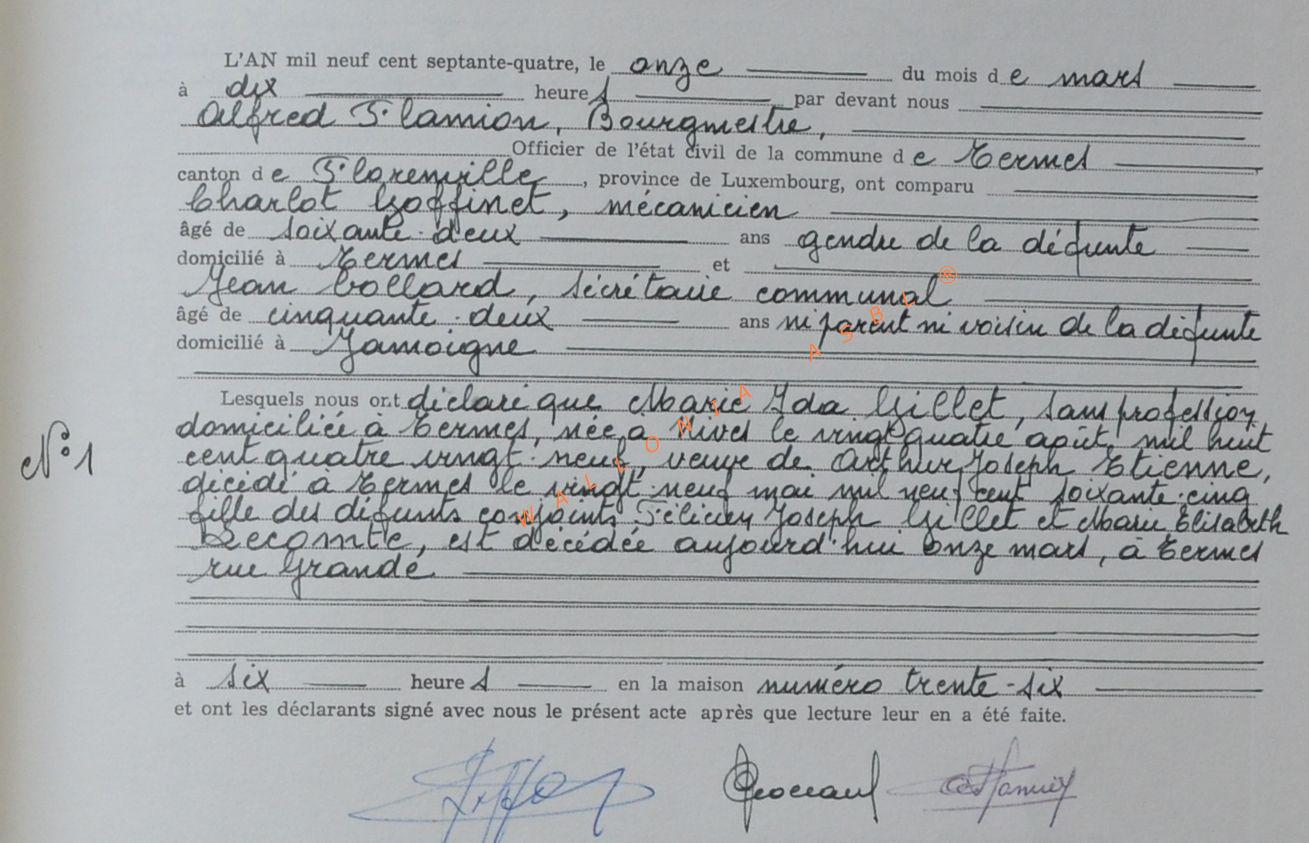 L'AN mil neuf cent septante-quatre, le onze du mois de mars
à dix heures par devant nous
Alfred Flamion, Bourgmestre,
Officier de l'état civil de la commune de Termes
canton de Florenville, province de Luxembourg, ont comparu
Charlot Goffinet, mécanicien
âgé de soixante-deux ans gendre de la défunte
domicilié à Termes et
Jean Collard, secrétaire communal
âgé de cinquante-deux ans ni parent ni voisin de la défunte
domicilié à Jamoigne
Lesquels nous ont déclaré que Marie Ida Gillet, sans profession,
domiciliée à Termes, née à Hives le vingt quatre août mil huit
N° 1
cent quatre vingt-neuf, veuve de Arthur Joseph Etienne,
décédé à Termes le vingt-neuf mai mil neuf cent soixante-cinq
fille des défunts conjoints Félicien Joseph Gillet et Marie Elisabeth
Lecomte, est décédée aujourd'hui onze mars, à Termes
rue Grande
à six heures en la maison numéro trente-six
et ont les déclarants signé avec nous le présent acte après que lecture leur en a été faite.
WALLONIA ASBL ®